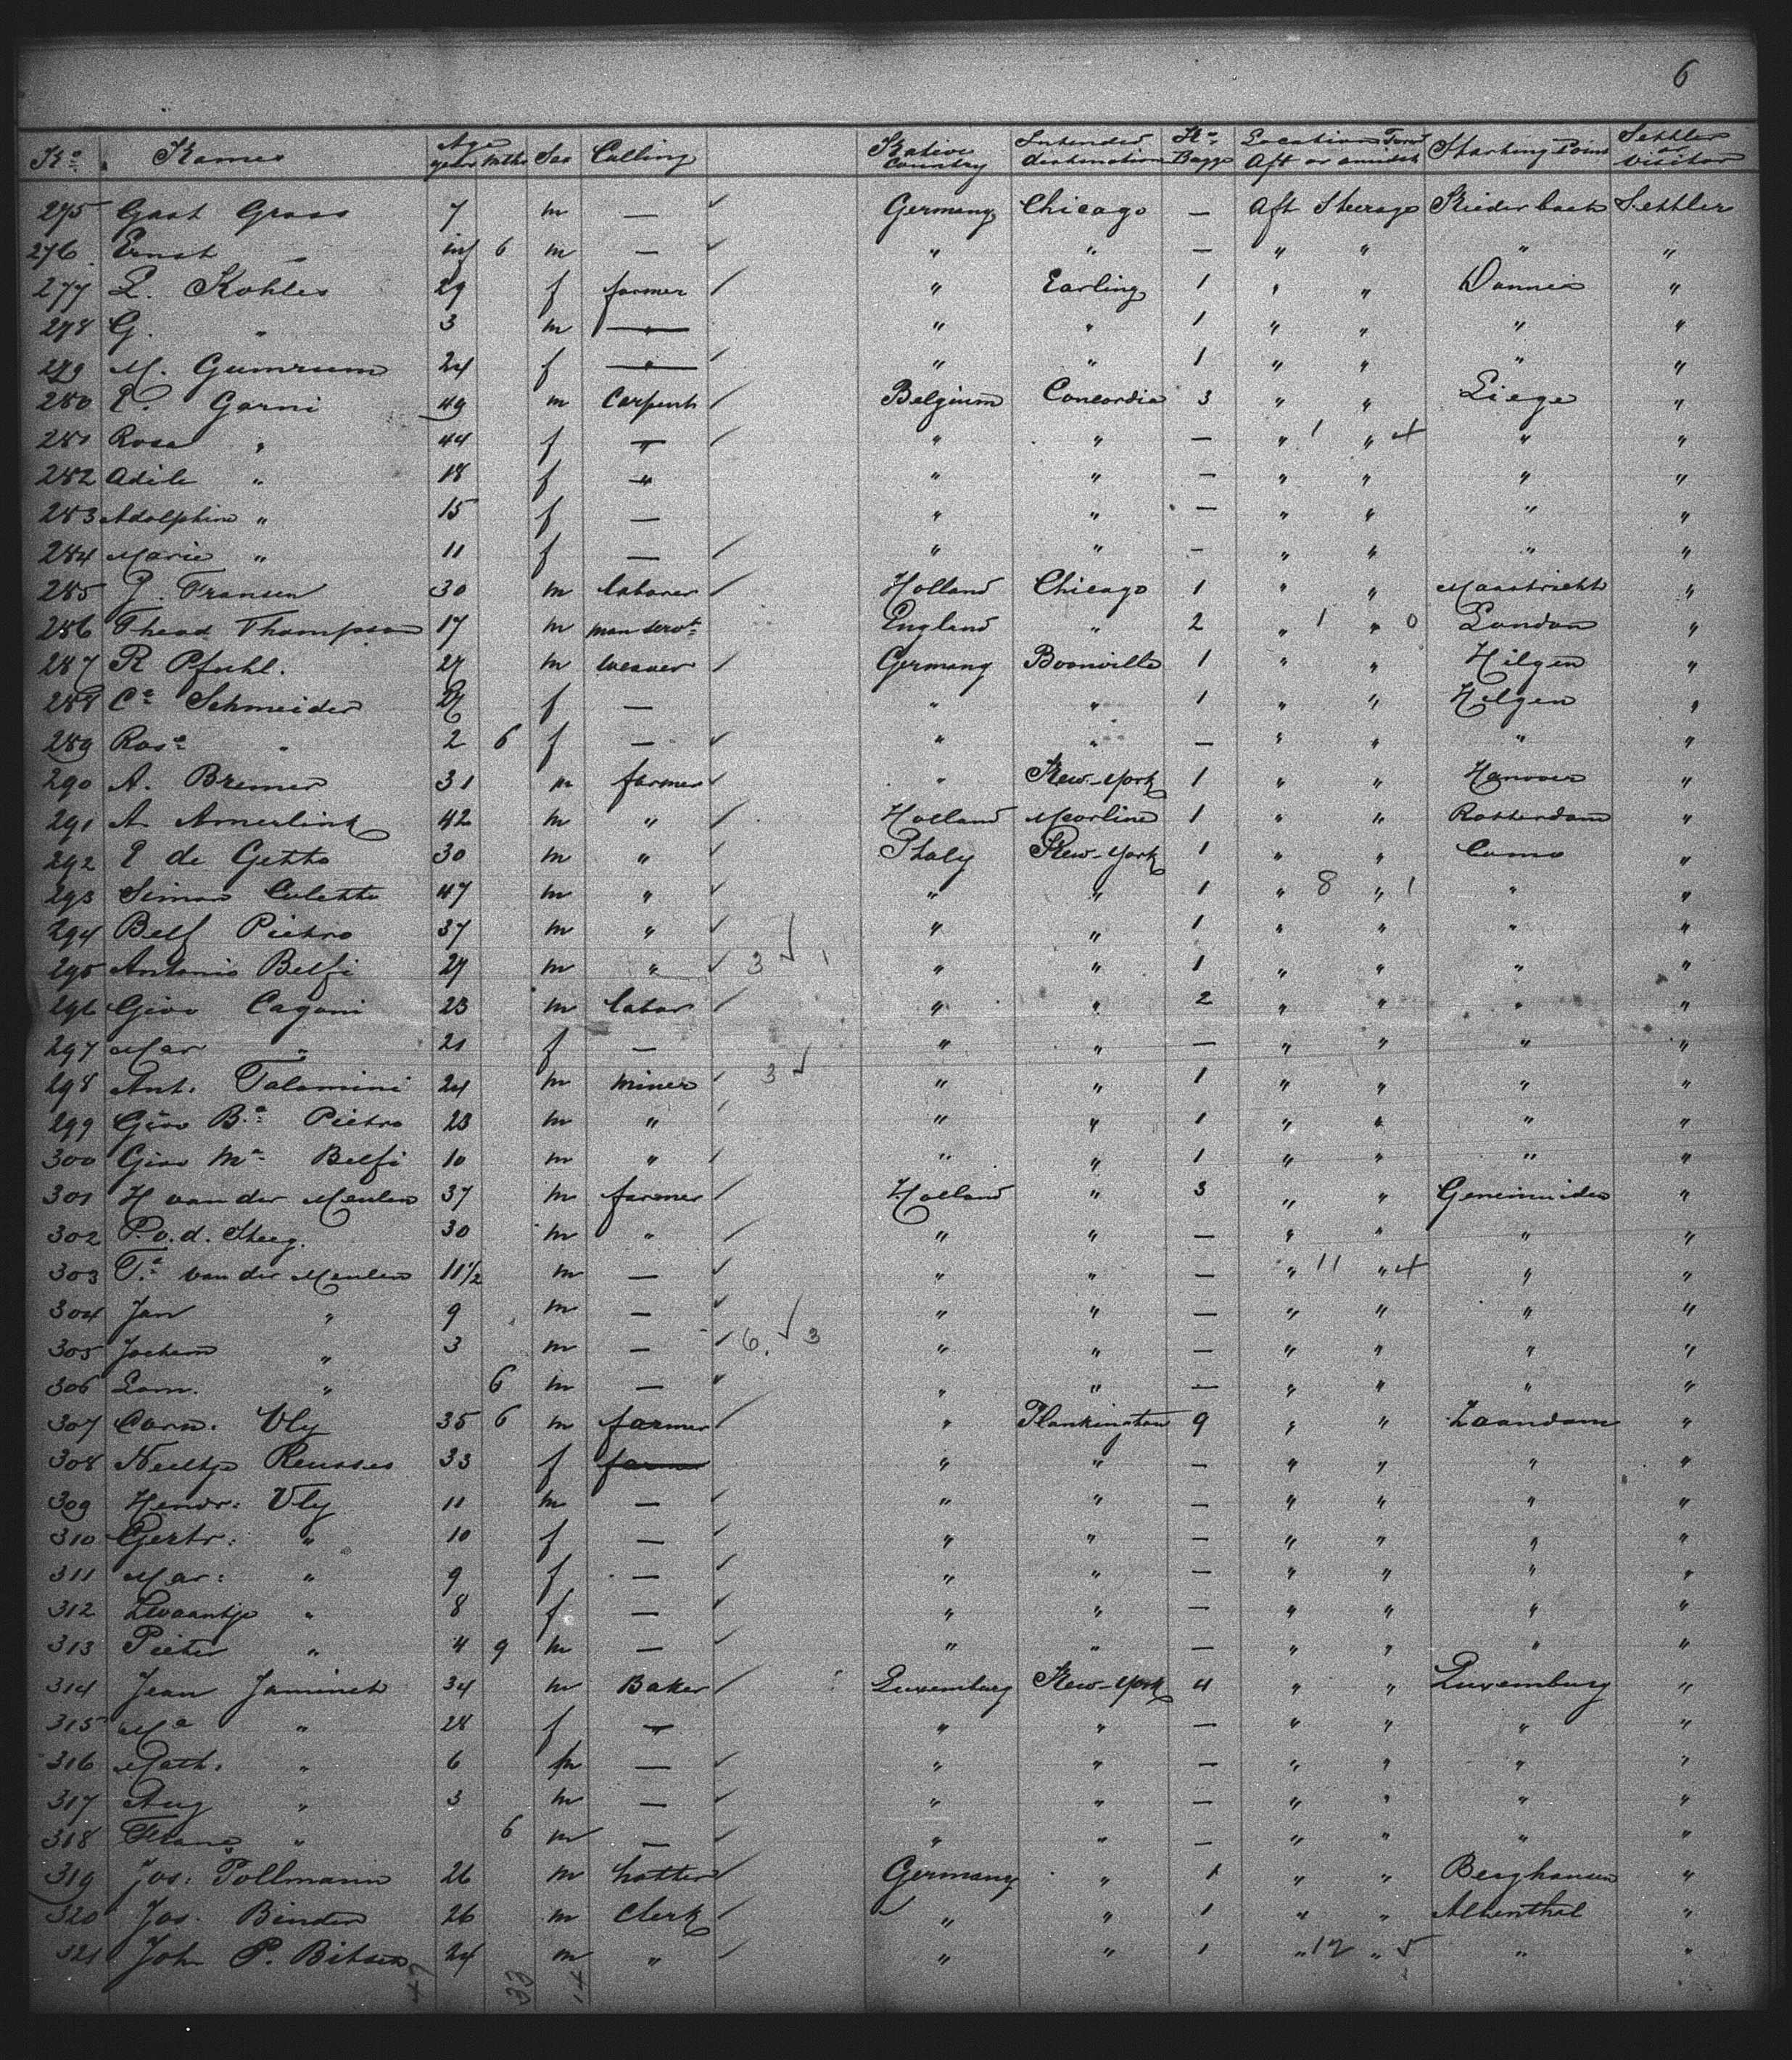 6
No. Names Age year mths Sex Calling Native Country Intended destination No. Bagge Location Forw Aft or amidsh Starting Point Settler or Visitor
275 Gust Gross 7 m — ✓ Germany Chicago — Aft Steerage Niederbach Settler
276 Ernst " inf 6 m — ✓ " " — " " " "
277 L. Kohles 29 f farmer ✓ " Earling 1 " " "
278 G. " 3 m — " " 1 " " " "
279 M. Gumrum 24 f — ✓ " " 1 " " " "
280 E. Garni 49 m Carpent ✓ Belgium Concordia 3 " " Liege "
281 Rosa " 44 f " ✓ " " — " 1 " 4 " "
282 Adile " 18 f " " " — " " " "
283 Adolphine " 15 f — " " — " " " "
284 Marie " 11 f — ✓ " " — " " " "
285 J. Fransen 30 m laborer ✓ Holland Chicago 1 " " Maastricht "
286 Thead Thompson 17 m man servt England " 2 " 1 " 0 London "
287 R Pfuhl. 27 m weaver ✓ Germany Boonville 1 " " Hilgen "
288 Ca Schneider 27 f — " " 1 " " Hilgen "
289 Rosa " 2 6 f — ✓ " " — " " " "
290 A. Bremer 31 m farmer ✓ " New-York 1 " " Hanover "
291 A. Amerlink 42 m " ✓ Holland Morline 1 " " Rotterdam "
292 P de Getto 30 m " ✓ Italy New-York 1 " " Como "
293 Simon Coletto 47 m " ✓ " " 1 " 8 " 1 " "
294 Belf Pietro 37 m " ✓ " " 1 " " " "
295 Antonio Belfi 27 m " ✓ 3 ✓ 1 " " 1 " " " "
296 Giov Cagoni 23 m labor ✓ " " 2 " " " "
297 Mar " 21 f — " " — " " " "
298 Ant. Talamini 24 m miner ✓ 3 ✓ " " 1 " " " "
299 Giov Ba Pietro 23 m " ✓ " " 1 " " " "
300 Giov Ma Belfi 10 m " ✓ " " 1 " " " "
301 H van der Meulen 37 m farmer ✓ Holland " 3 " " Genemuiden "
302 P. v. d. Steeg. 30 m " ✓ " " — " " " "
303 Ta van der Meulen 11 1/2 m — ✓ " " — " 11 " 4 " "
304 Jan " 9 m — ✓ " " — " " " "
305 Jochem " 3 m — ✓ 6. ✓ 3 " " — " " " "
306 Lam. " 6 m — ✓ " " — " " " "
307 Corn. Vly 35 6 m farmer ✓ " Plankinaton 9 " " Zaandam "
308 Neeltje Reusses 33 f farmer " " — " " " "
309 Hendr: Vly 11 m — ✓ " " — " " " "
310 Gertr: " 10 f — ✓ " " — " " " "
311 Mar: " 9 f — ✓ " " — " " " "
312 Lwaantje " 8 f — ✓ " " — " " " "
313 Pieter " 4 9 m — ✓ " " — " " " "
314 Jean Jaminet 34 m Baker ✓ Luxemburg New-York 4 " " Luxemburg "
315 Ma " 28 f " " " — " " " "
316 Math. " 6 m — ✓ " " — " " " "
317 Aug " 3 m — ✓ " " — " " " "
318 Franc " 6 m — ✓ " " — " " " "
319 Jos: Pollmann 26 m hatter ✓ Germany " 1 " " Berghausen "
320 Jos. Binder 26 m Clerk ✓ " " 1 " " Altenthal "
321 Joh P. Bitsen 24 m " ✓ " " 1 " 12 " 5 " "
47 33 14